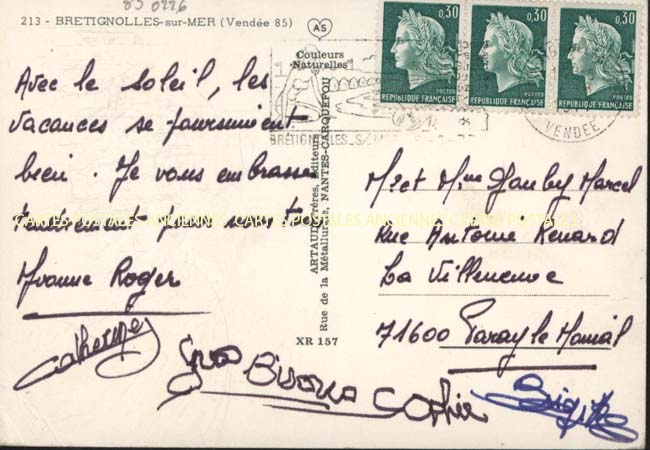 85 0226
213 - BRETIGNOLLES-sur-MER (Vendée 85)
AS
Couleurs
Naturelles
0,30 0,30 0,30
POSTES POSTES POSTES
REPUBLIQUE FRANÇAISE REPUBLIQUE FRANÇAISE REPUBLIQUE FRANÇAISE
BRÉTIGNOLLES S/
VENDEE
Avec le soleil, les
vacances se poursuivent
bien. Je vous embrasse
tendrement
Yvonne Roger
Catherine
Gros Bisous Sophie
Brigitte
ARTAUD Frères, Editeurs
Rue de la Métallurgie, NANTES-CARQUEFOU
XR 157
Mr et Mme Marcel
Rue Antoine Renard
La Villeneuve
71600 Paray le Monial
CARTES POSTALES ANCIENNES CARTES POSTALES ANCIENNES CARTES POSTALES